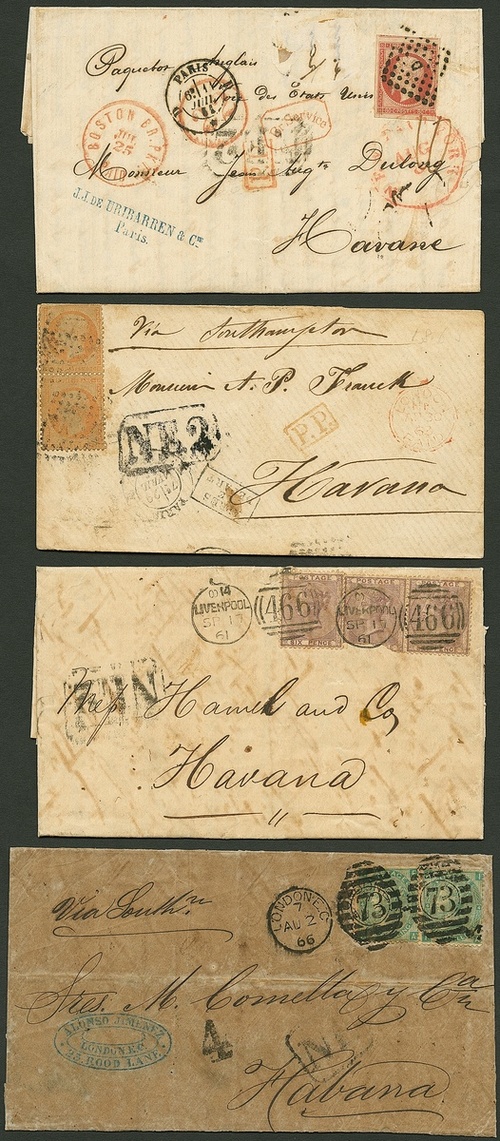 Paquebot Anglais
Voie des Etats Unis
PARIS
BOSTON BR. PKT
25
Service
Monsieur Jean Augte Dulong
Havane
J.J. DE URIBARREN & Cie
Paris.
Via Southampton
Monsieur A. P. Franck
NE2
P.P.
Havana
LIVERPOOL
SP 17
61
466
POSTAGE
SIX PENCE
POSTAGE
LIVERPOOL
SP 17
61
466
POSTAGE
Hamel and Co
Havana
"
Via Southn
LONDON.E.C
7
AU 2
66
73
73
Sres. M. Comella y Ca
ALONSO JIMENEZ
LONDON.E.C
23. ROOD LANE
4
Habana.